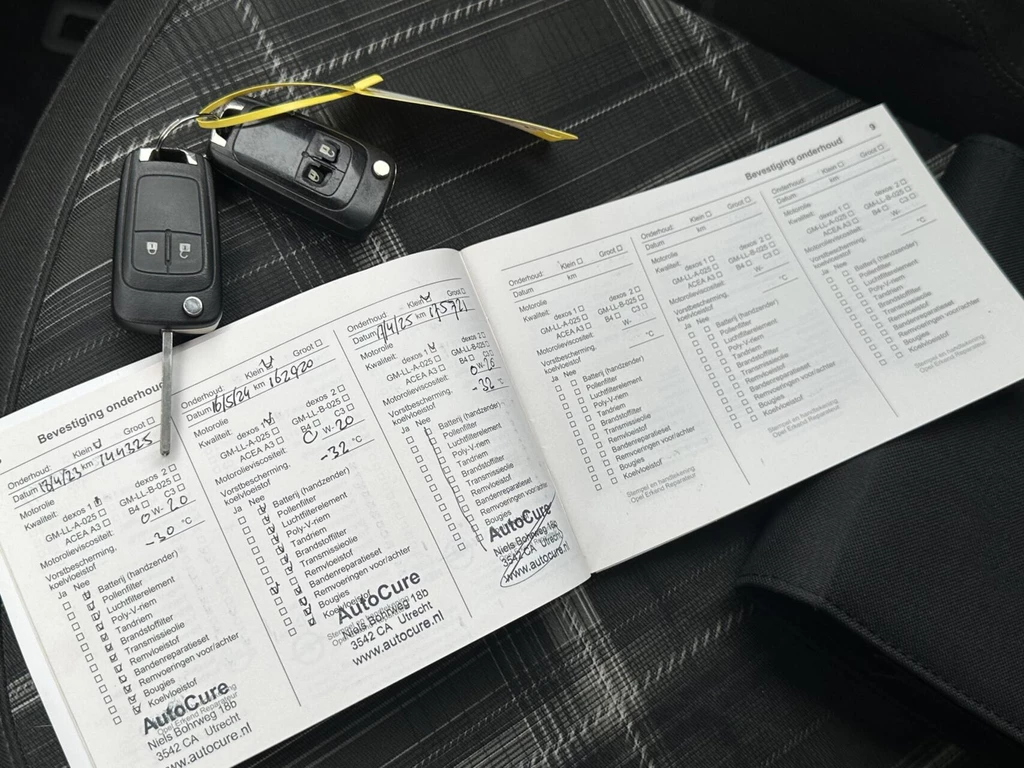 Bevestiging onderhoud
Onderhoud: Klein Groot
Datum 13/4/23 km 144325
Motorolie
Kwaliteit: dexos 1 dexos 2
GM-LL-A-025 GM-LL-B-025
ACEA A3 B4 C3
Motorolieviscositeit: 0 W- 20
Vorstbescherming, -30 °C
koelvloeistof
Ja Nee
Batterij (handzender)
Pollenfilter
Luchtfilterelement
Poly-V-riem
Tandriem
Brandstoffilter
Transmissieolie
Remvloeistof
Bandenreparatieset
Remvoeringen voor/achter
Bougies
Koelvloeistof
AutoCure
Opel Erkend Reparateur
Niels Bohrweg 18b
3542 CA Utrecht
www.autocure.nl
Onderhoud: Klein Groot
Datum 16/5/24 km 162920
Motorolie
Kwaliteit: dexos 1 dexos 2
GM-LL-A-025 GM-LL-B-025
ACEA A3 B4 C3
Motorolieviscositeit: 0 W- 20
Vorstbescherming, -32 °C
koelvloeistof
Ja Nee
Batterij (handzender)
Pollenfilter
Luchtfilterelement
Poly-V-riem
Tandriem
Brandstoffilter
Transmissieolie
Remvloeistof
Bandenreparatieset
Remvoeringen voor/achter
Bougies
Koelvloeistof
AutoCure
Niels Bohrweg 18b
3542 CA Utrecht
www.autocure.nl
Onderhoud: Klein Groot
Datum 17/4/25 km 175721
Motorolie
Kwaliteit: dexos 1 dexos 2
GM-LL-A-025 GM-LL-B-025
ACEA A3 B4 C3
Motorolieviscositeit: 0 W- 20
Vorstbescherming, -32 °C
koelvloeistof
Ja Nee
Batterij (handzender)
Pollenfilter
Luchtfilterelement
Poly-V-riem
Tandriem
Brandstoffilter
Transmissieolie
Remvloeistof
Bandenreparatieset
Remvoeringen voor/achter
Bougies
AutoCure
Niels Bohrweg 18b
3542 CA Utrecht
www.autocure.nl
Bevestiging onderhoud 9
Onderhoud: Klein Groot
Datum km
Motorolie
Kwaliteit: dexos 1 dexos 2
GM-LL-A-025 GM-LL-B-025
ACEA A3 B4 C3
Motorolieviscositeit: W-
Vorstbescherming, °C
koelvloeistof
Ja Nee
Batterij (handzender)
Pollenfilter
Luchtfilterelement
Poly-V-riem
Tandriem
Brandstoffilter
Transmissieolie
Remvloeistof
Bandenreparatieset
Remvoeringen voor/achter
Bougies
Koelvloeistof
Stempel en handtekening
Opel Erkend Reparateur
Onderhoud: Klein Groot
Datum km
Motorolie
Kwaliteit: dexos 1 dexos 2
GM-LL-A-025 GM-LL-B-025
ACEA A3 B4 C3
Motorolieviscositeit: W-
Vorstbescherming, °C
koelvloeistof
Ja Nee
Batterij (handzender)
Pollenfilter
Luchtfilterelement
Poly-V-riem
Tandriem
Brandstoffilter
Transmissieolie
Remvloeistof
Bandenreparatieset
Remvoeringen voor/achter
Bougies
Koelvloeistof
Stempel en handtekening
Opel Erkend Reparateur
Onderhoud: Klein Groot
Datum km
Motorolie
Kwaliteit: dexos 1 dexos 2
GM-LL-A-025 GM-LL-B-025
ACEA A3 B4 C3
Motorolieviscositeit: W-
Vorstbescherming, °C
koelvloeistof
Ja Nee
Batterij (handzender)
Pollenfilter
Luchtfilterelement
Poly-V-riem
Tandriem
Brandstoffilter
Transmissieolie
Remvloeistof
Bandenreparatieset
Remvoeringen voor/achter
Bougies
Koelvloeistof
Stempel en handtekening
Opel Erkend Reparateur